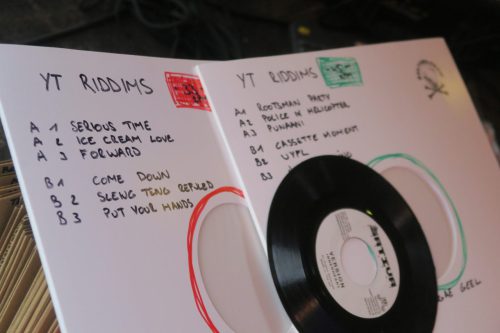 YT RIDDIMS
A 1 SERIOUS TIME
A 2 ICE CREAM LOVE
A 3 FORWARD
B 1 COME DOWN
B 2 SLENG TENG REFILED
B 3 PUT YOUR HANDS
YT RIDDIMS
A1 ROOTSMAN PARTY
A2 POLICE IN HELICOPTER
A3 PUNAANI
B1 CASSETTE MOMENT
B2
B3
SATIVA
VERSION